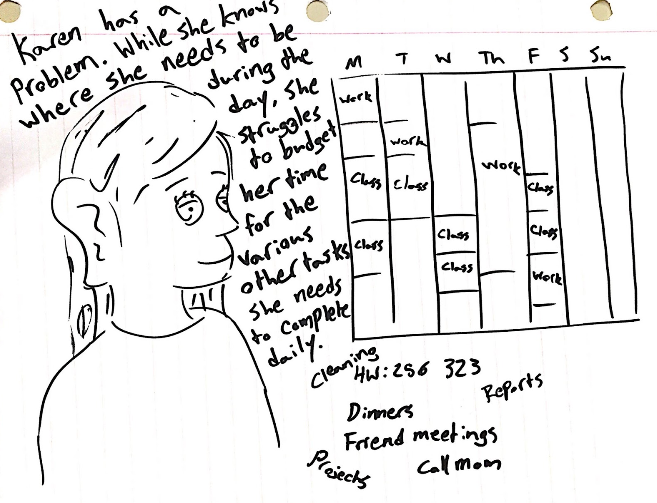 Karen has a
Problem. While she knows
where she needs to be
during the
day, she
struggles
to budget
her time
for the
various
other tasks
she needs
to complete
daily.
M T W Th F S Su
Work
Work
Work
Class Class Class
Class Class Class
Class Work
Cleaning
HW: 256 323
Reports
Dinners
Friend meetings
Projects
Call Mom